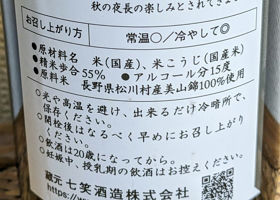 秋の夜長の楽しみとされてきま
お召し上がり方
常温○/冷やして◎
●原材料名 米(国産)、米こうじ(国産米)
●精米歩合55% ●アルコール分15度
●原料米 長野県松川村産美山錦100%使用
○光や高温を避け、出来るだけ冷暗所で、
保存ください。
○開栓後はなるべく早めにお召し上がり
ください。
○飲酒は20歳になってから。
○妊娠中、授乳期の飲酒はお控えください。
蔵元 七笑酒造株式会社
https://w